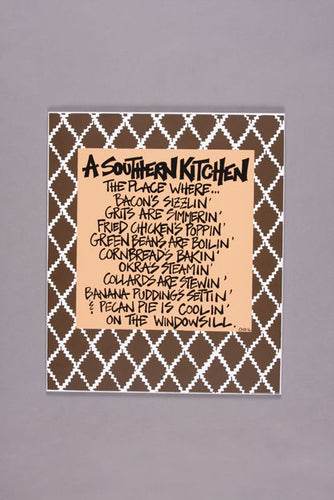 A SOUTHERN KITCHEN
THE PLACE WHERE...
BACON'S SIZZLIN'
GRITS ARE SIMMERIN'
FRIED CHICKEN'S POPPIN'
GREEN BEANS ARE BOILIN'
CORNBREAD'S BAKIN'
OKRA'S STEAMIN'
COLLARDS ARE STEWIN'
BANANA PUDDING'S SETTIN'
& PECAN PIE IS COOLIN'
ON THE WINDOWSILL.